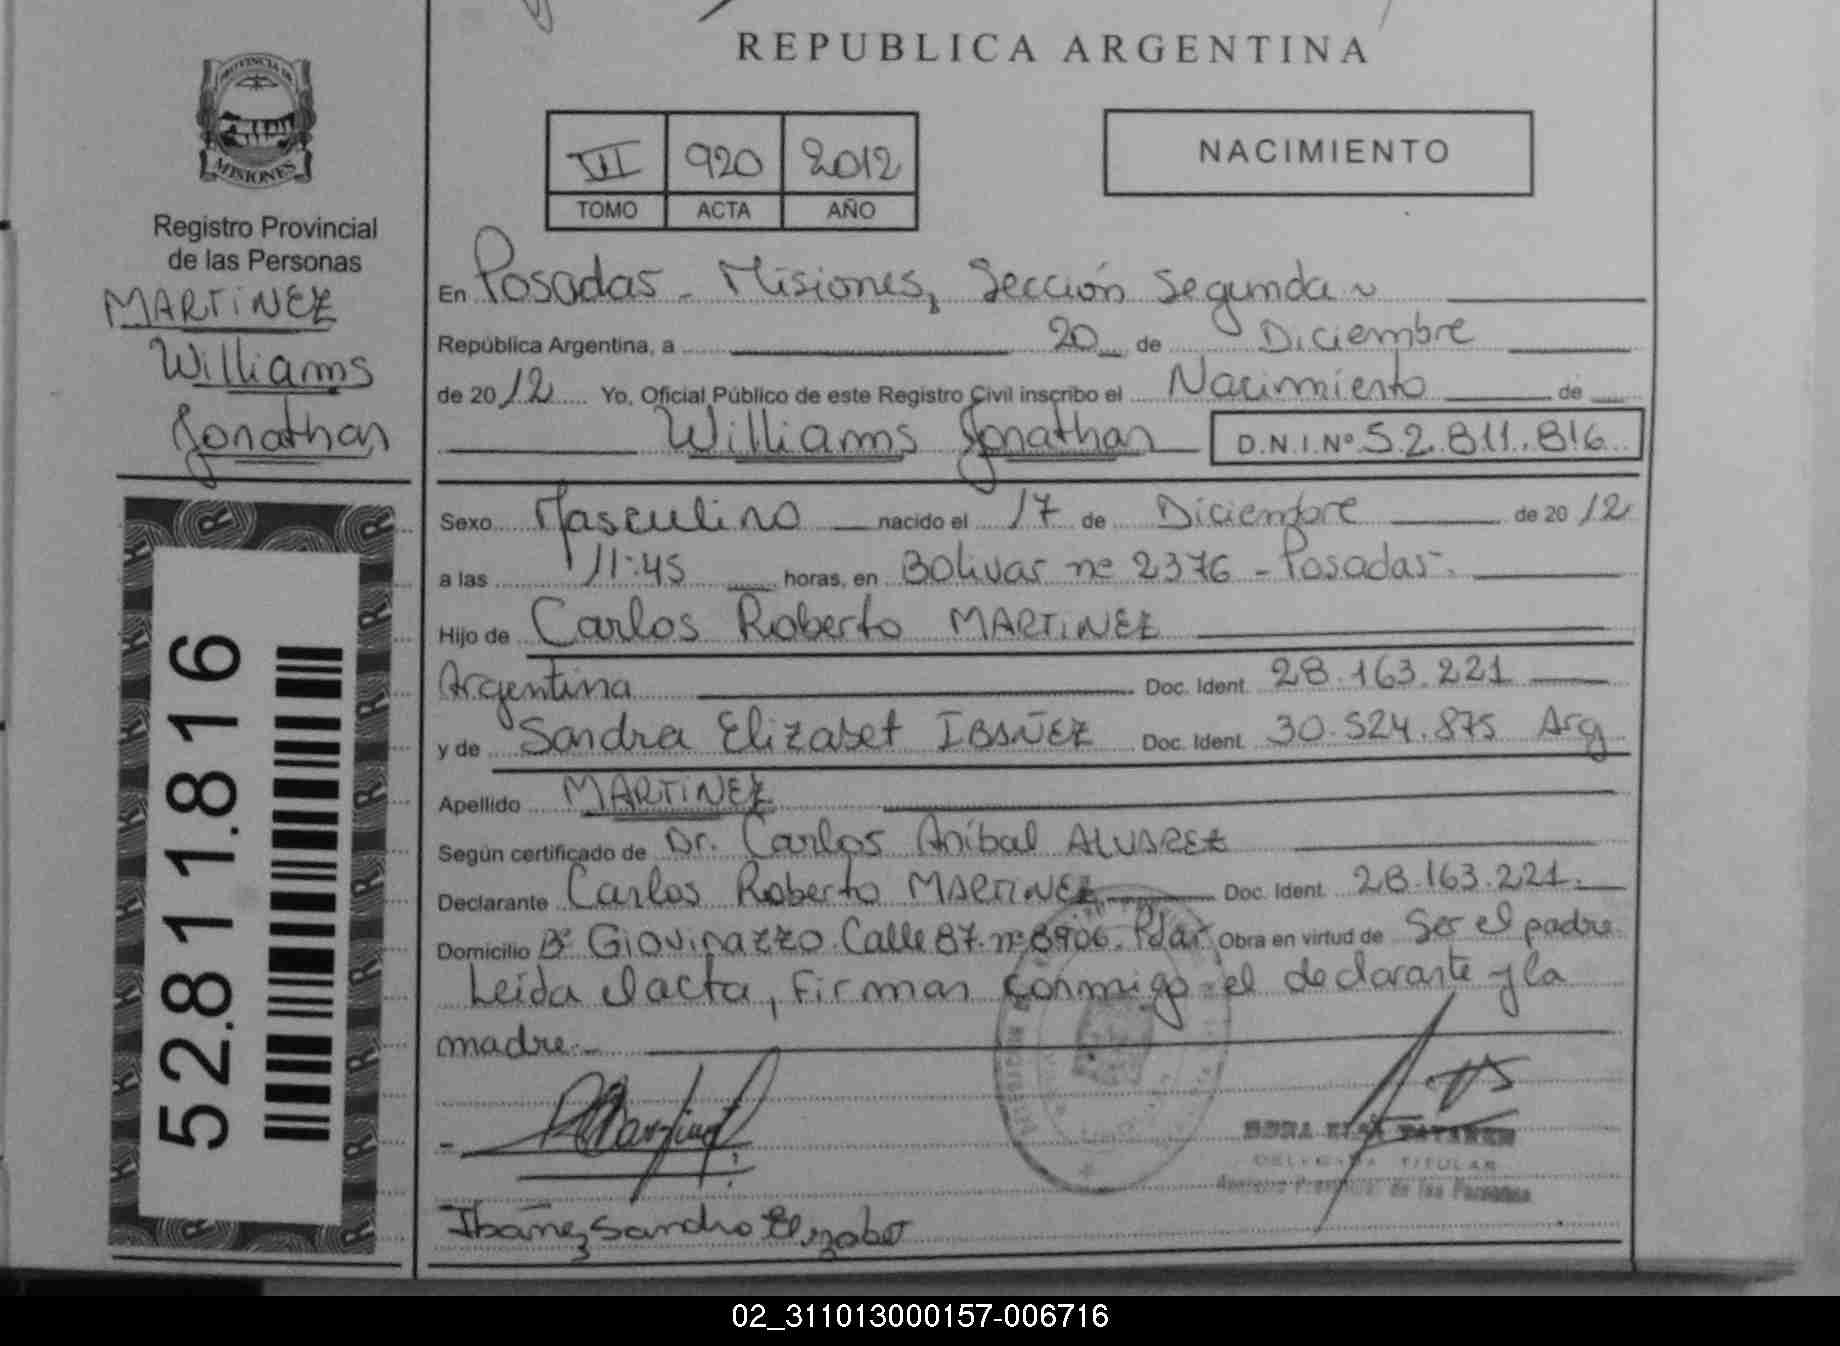 REPUBLICA ARGENTINA
PROVINCIA DE
MISIONES
Registro Provincial
de las Personas
MARTINEZ
Williams
Jonathan
52.811.816
III 920 2012
TOMO ACTA AÑO
NACIMIENTO
En Posadas - Misiones, Sección Segunda
República Argentina, a 20 de Diciembre
de 2012 Yo, Oficial Público de este Registro Civil inscribo el Nacimiento de
Williams Jonathan D.N.I.Nº 52.811.816
Sexo Masculino nacido el 17 de Diciembre de 2012
a las 11:45 horas, en Bolivar nº 2376 - Posadas.
Hijo de Carlos Roberto MARTINEZ
Argentina Doc. Ident. 28.163.221
y de Sandra Elizabet IBAÑEZ Doc. Ident. 30.524.875 Arg
Apellido MARTINEZ
Según certificado de Dr. Carlos Aníbal ALVAREZ
Declarante Carlos Roberto MARTINEZ Doc. Ident. 28.163.221.
Domicilio Bº Giovinazzo. Calle 87. nº 8906. Pdas Obra en virtud de Ser el padre
Leída el acta, firman conmigo el declarante y la
madre.
DELEGADA TITULAR
Registro Provincial de las Personas
Ibañez Sandra Elizabet
02_311013000157-006716